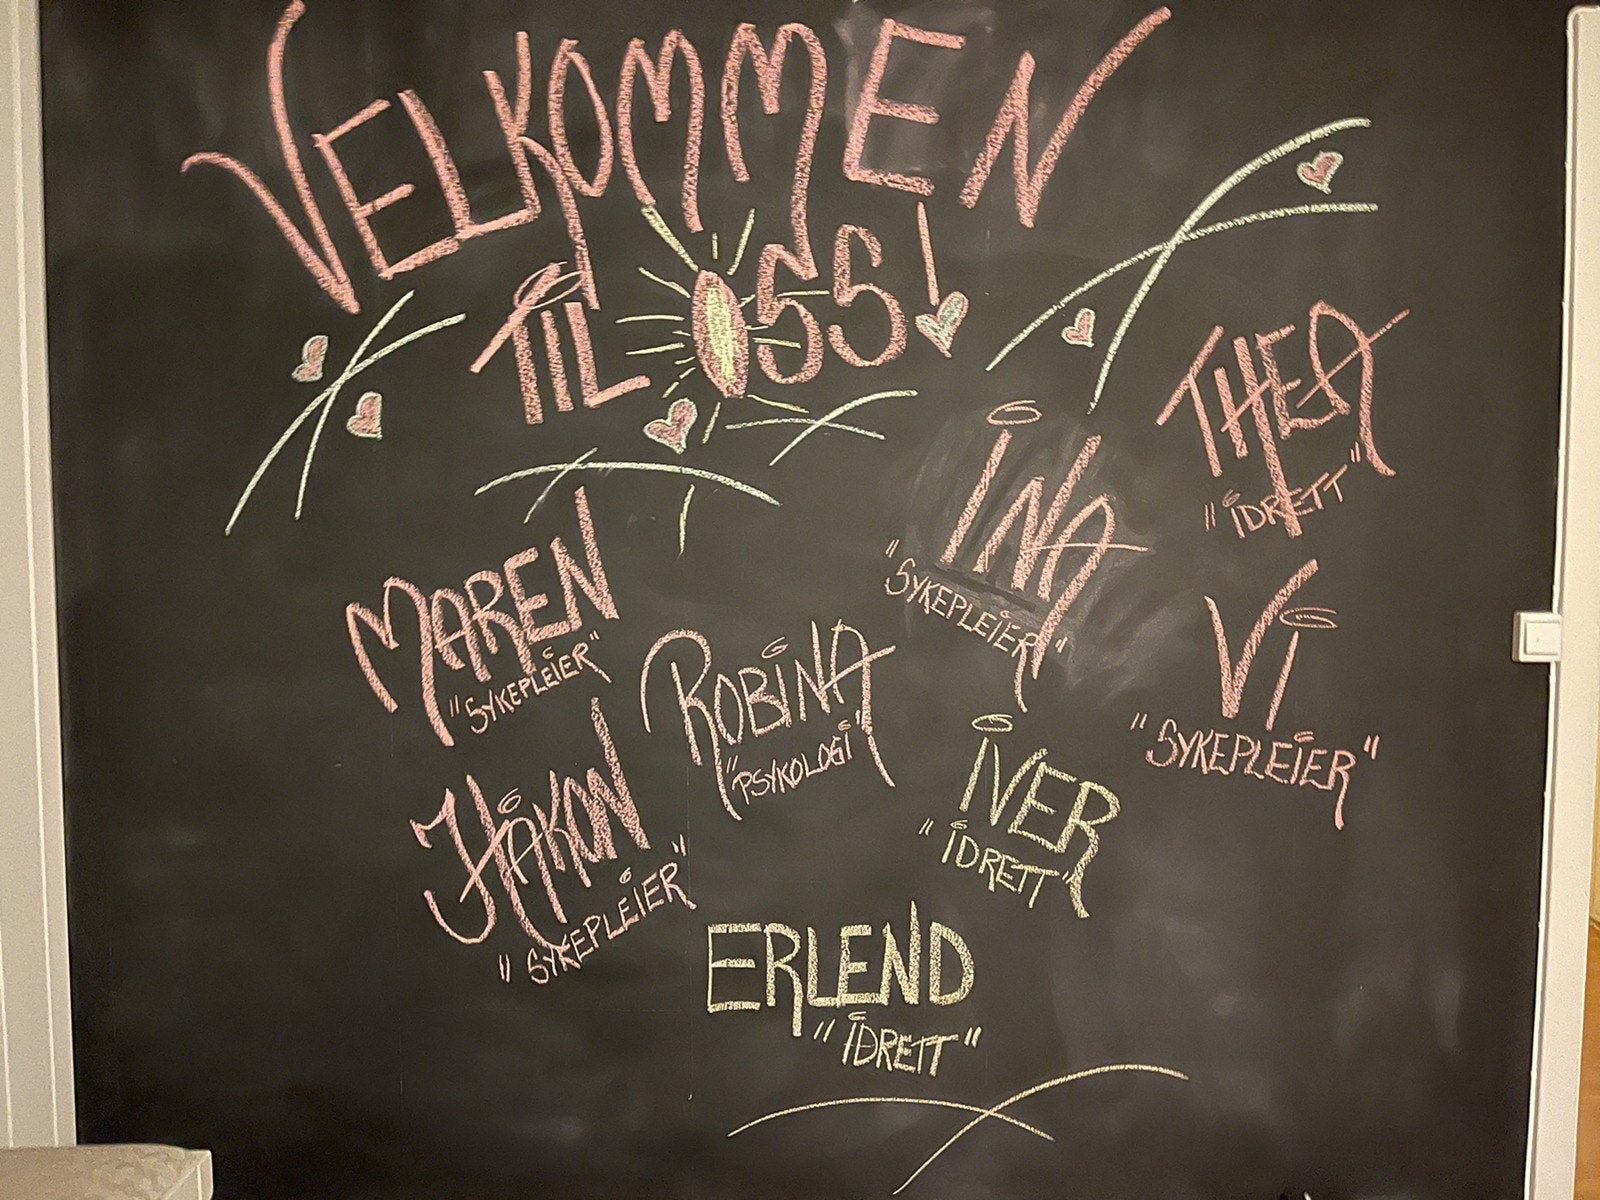 VELKOMMEN
TIL OSS!
THEA
"IDRETT"
INA
"SYKEPLEIER"
MAREN
"SYKEPLEIER"
ROBINA
"PSYKOLOGI"
VI
"SYKEPLEIER"
HÅKON
"SYKEPLEIER"
IVER
"IDRETT"
ERLEND
"IDRETT"